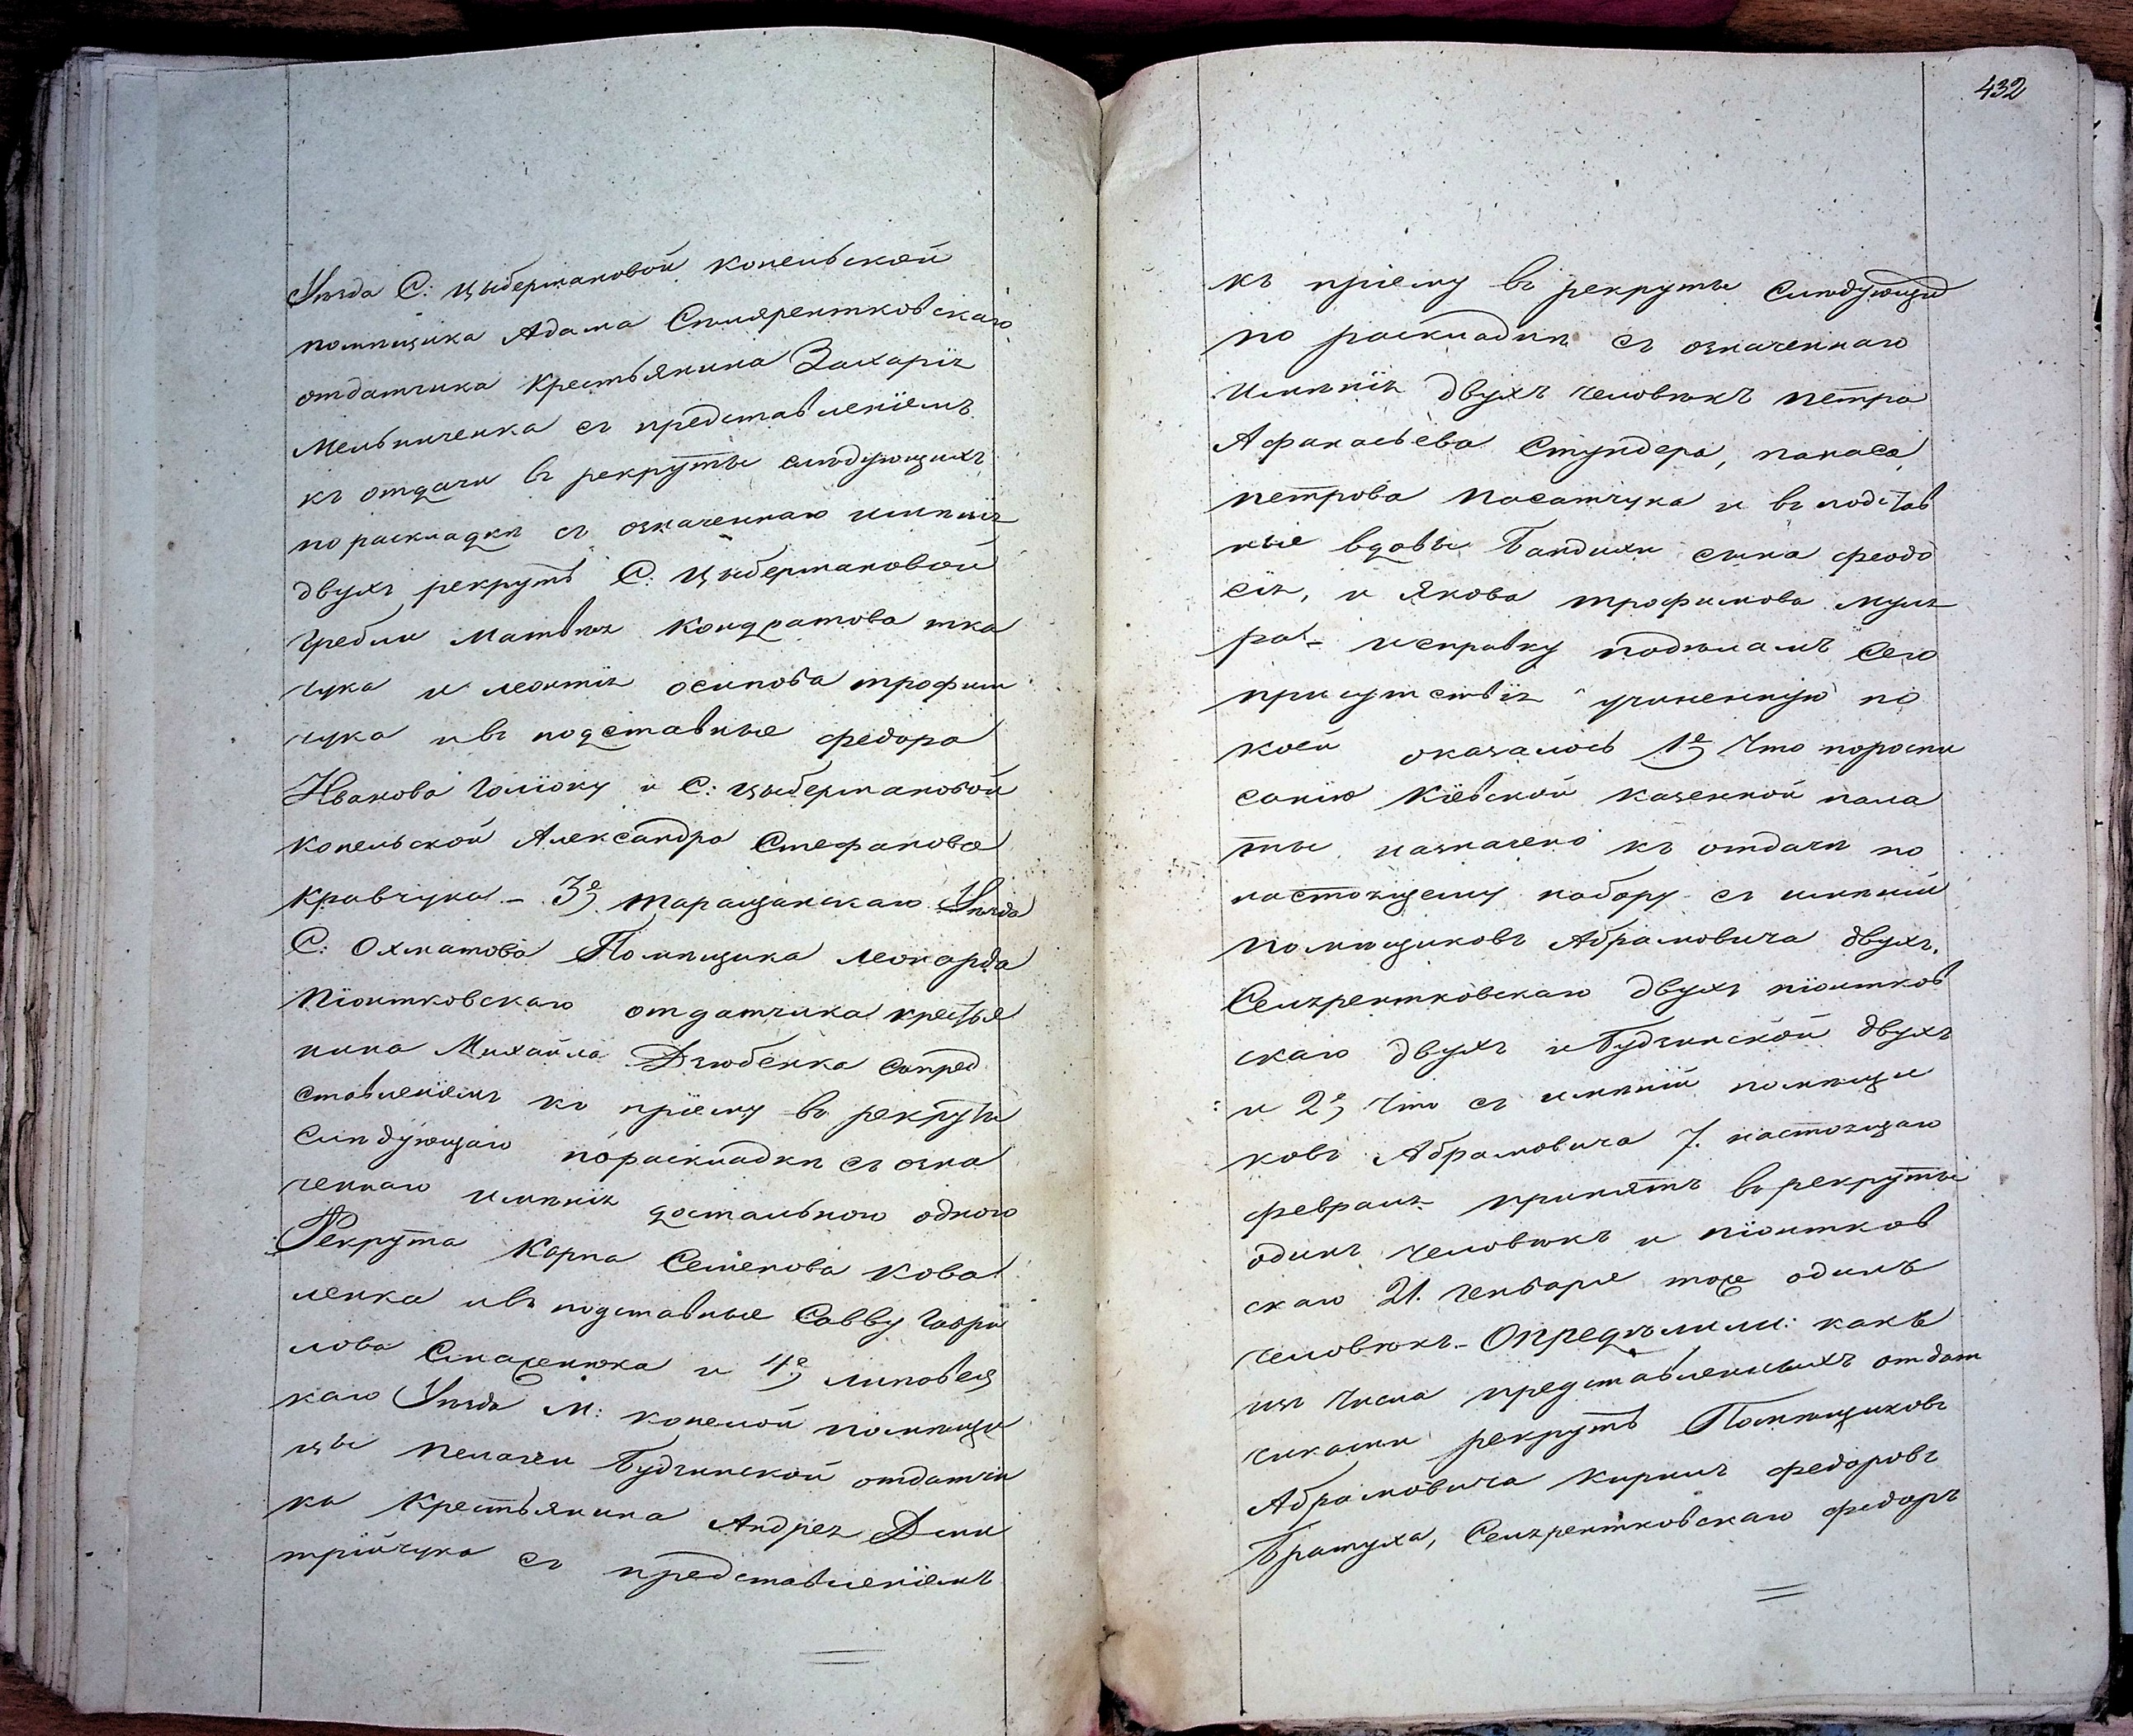 Уѣзда С: цыбермановой копельской
помѣщика Адама Сетярентковскаго
отдатчика Крестьянина Захарія
Мельниченка съ представленіемъ
къ отдачи въ рекруты слѣдующихъ
по раскладкѣ съ означеннаго имѣнія
двухъ рекрутъ С: Цыбермановой
гребли Матвѣя Кондратова тка
чука и леонтія осипова трофим
чука ивъ подставные федора
Иванова Голіоку и С: цыбермановой
копельской Александра Стефанова
кравчука – 3е, таращанскаго Уѣзда
С: Охматова Помѣщика леонарда
піонтковскаго отдатчика крестья
нина Михайла Дзюбенка сопред
ставленіемъ къ пріему въ рекруты
слѣдующаго пораскладкѣ съ озна
ченнаго имѣнія достальнаго одного
Рекрута Карпа Семенова Кова
ленка ивъ подставные Савву Гаври
лова и 4е, липовец
каго Уѣзда М: копелой помѣщи
цы пелагеи Будзинской отдатчи
ка Крестьянина Андрея Дми
трійчука съ представленіемъ
432
къ пріему въ рекруты Слѣдующихъ
по раскладкѣ съ означеннаго
имѣнія двухъ человѣкъ петра
Афанасьева Стундера, панаса
петрова пасатчука и въ подстав
ные вдовы Бандихи сына феодо
сія, и Якова трофимова муля
ра – и справку подѣламъ сего
присутствія учиненную по
коей оказалось 1е, Что пороспи
санію Кіевской казенной пала
ты назначено къ отдачи по
настоящему набору съ имѣній
помѣщиковъ Абрамовича двухъ,
Семярентковскаго двухъ піонтков
скаго двухъ и Будзинской двухъ
и 2е, Что съ имѣній помѣщи
ковъ Абрамовича 7. настоящаго
февраля принятъ въ рекруты
одинъ человѣкъ и піонтков
скаго 21. генваря тоже одинъ
человѣкъ – Опредѣлили: какъ
изъ числа представленныхъ отдат
чиками рекрутъ Помѣщиковъ
Абрамовича кирилъ федоровъ
Братуха, Семярентковскаго федоръ